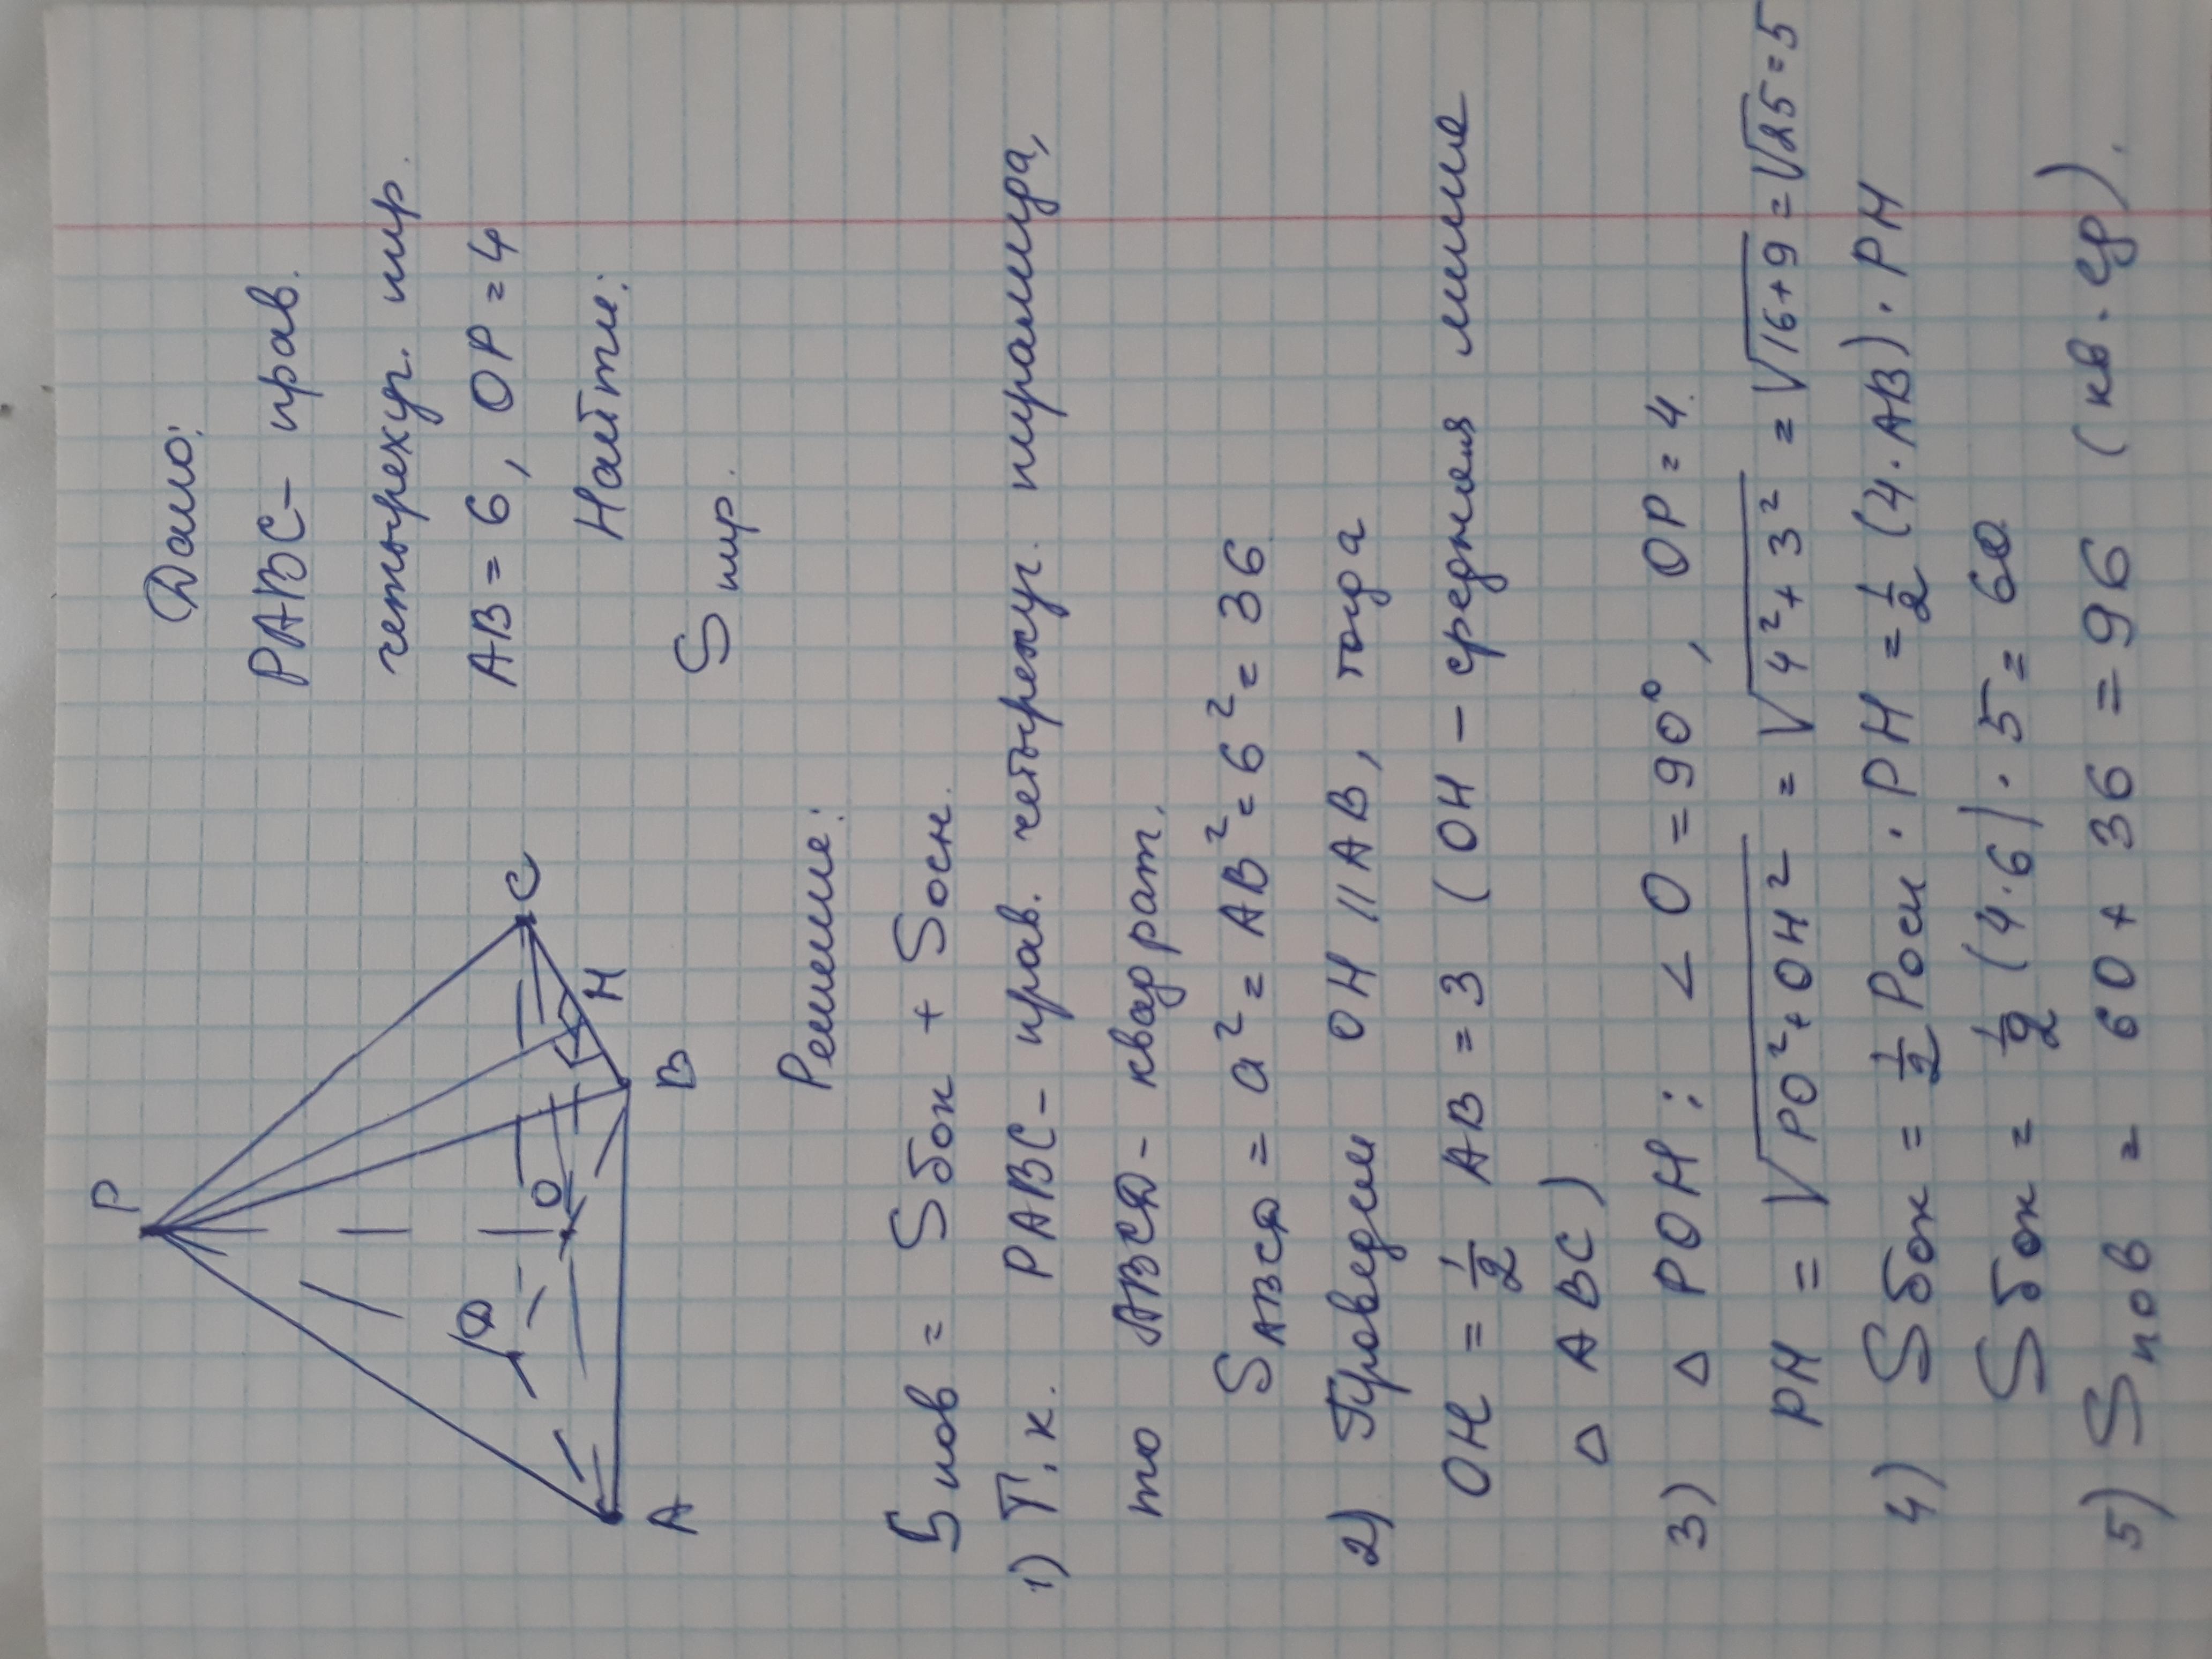 P
D
O
C
H
B
A
Дано:
РАВС – прав.
четырехуг. пир.
АВ = 6, ОР = 4
Найти:
S пир.
Решение:
S пов = S бок + S осн.
1) Т.к. РАВС – прав. четырехуг. пирамида,
то АВСD – квадрат.
S ABCD = a² = AB² = 6² = 36
2) Проведем ОН || АВ, тогда
ОН = 1/2 АВ = 3 (ОН – средняя линия
△ АВС)
3) △ РОН: < О = 90°, ОР = 4
РН = √PO² + OH² = √4² + 3² = √16+9 = √25 = 5
4) S бок = 1/2 Росн · РН = 1/2 (4·АВ) · РН
S бок = 1/2 (4·6) · 5 = 60
5) S пов = 60 + 36 = 96 (кв. ед).